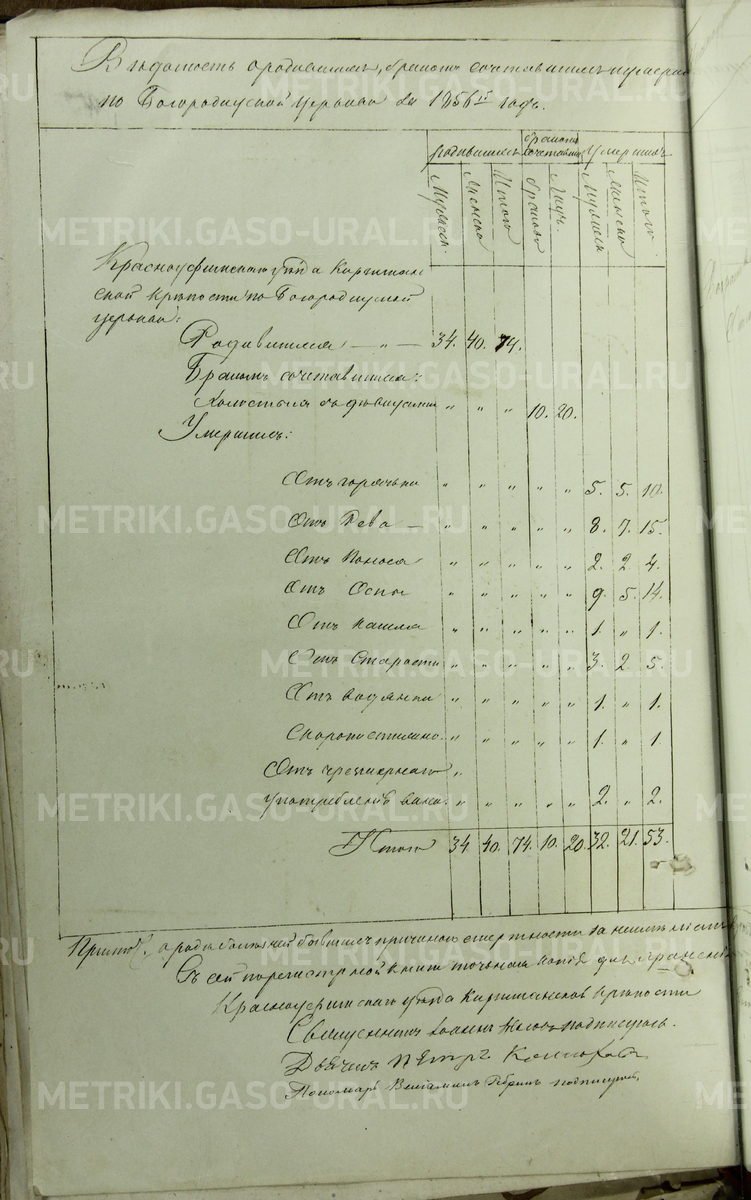 Вѣдомость о родившихся, бракомъ сочетавшихся и умерш
по Богородицкой церкви за 1856й годъ.
родившихся бракомъ сочетавш. Умершихъ
Мужеска Женска Итого браковъ Лицъ Мужеска Женска Итого
Красноуфимскаго уѣзда Киргишан
ской крѣпости по Богородицкой
церкви:
Родившихся — „ — 34. 40. 74.
Бракомъ сочетавшихся:
Холостыя съ дѣвицами „ „ „ 10. 20.
Умершихъ:
Отъ горячьки „ „ „ „ „ 5. 5. 10.
Отъ Рева — „ „ „ „ „ 8. 7. 15.
Отъ Поноса „ „ „ „ „ 2. 2. 4.
Отъ Оспы „ „ „ „ „ 9. 5. 14.
Отъ Кашля „ „ „ „ „ 1. „ 1.
Отъ Старости „ „ „ „ „ 3. 2. 5.
Отъ водянки „ „ „ „ „ 1. „ 1.
Скоропостижно „ „ „ „ „ 1. „ 1.
Отъ чрезмернаго „
употребленія вина „ „ „ „ „ 2. „ 2.
Итого 34. 40. 74. 10. 20. 32. 21. 53.
о родѣ болѣзней бывшихъ причиною смертности
Съ сей книги точьная копія для
Красноуфимскаго уѣзда Киргишанской крѣпости
Священникъ Іоаннъ подписуюсь.
Дьячекъ Петръ
Пономарь Веніаминъ подписуюсь.
METRIKI.GASO-URAL.RU